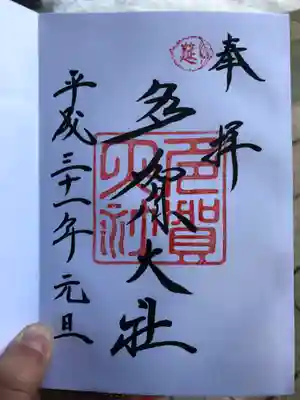 奉拝
多賀大社
平成三十一年元旦
多賀大社